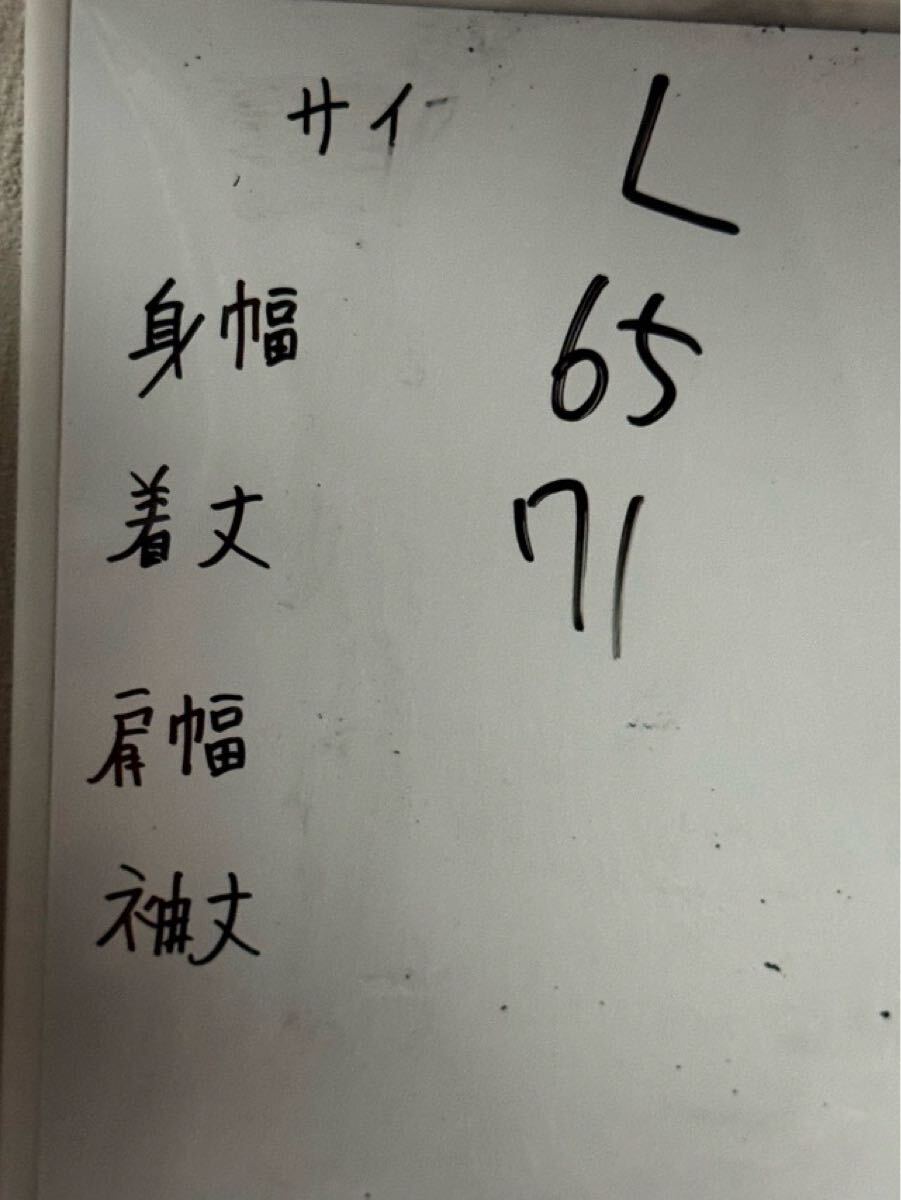 サイ L
身幅 65
着丈 71
肩幅
袖丈